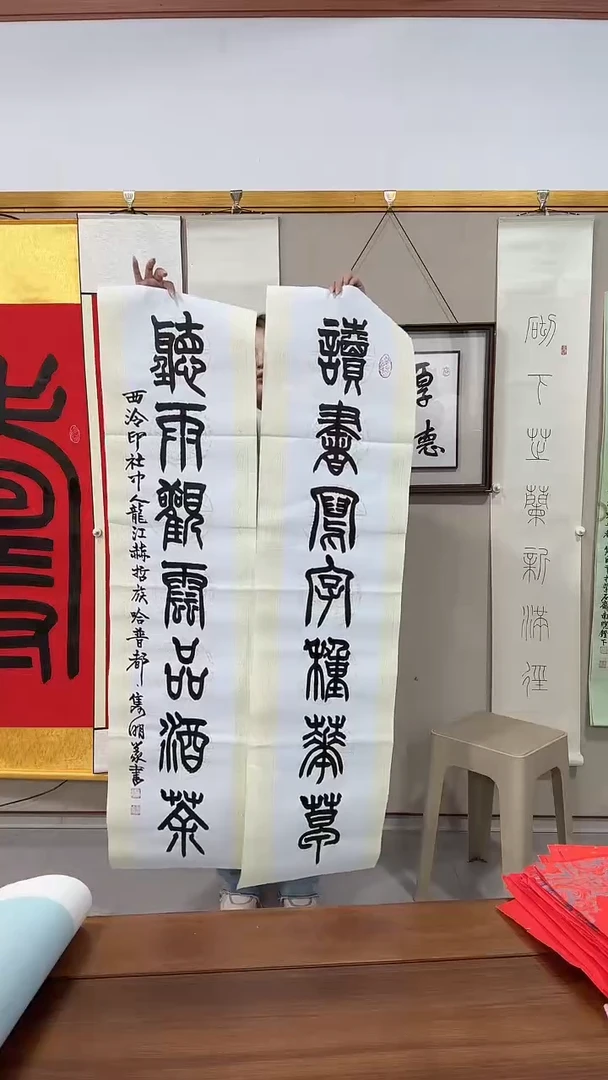 砌下芝蘭新滿徑
厚德
讀書寫字種華草
聽雨觀雲品酒茶
西泠印社中人龍江赫哲族哈普都·雋明篆書